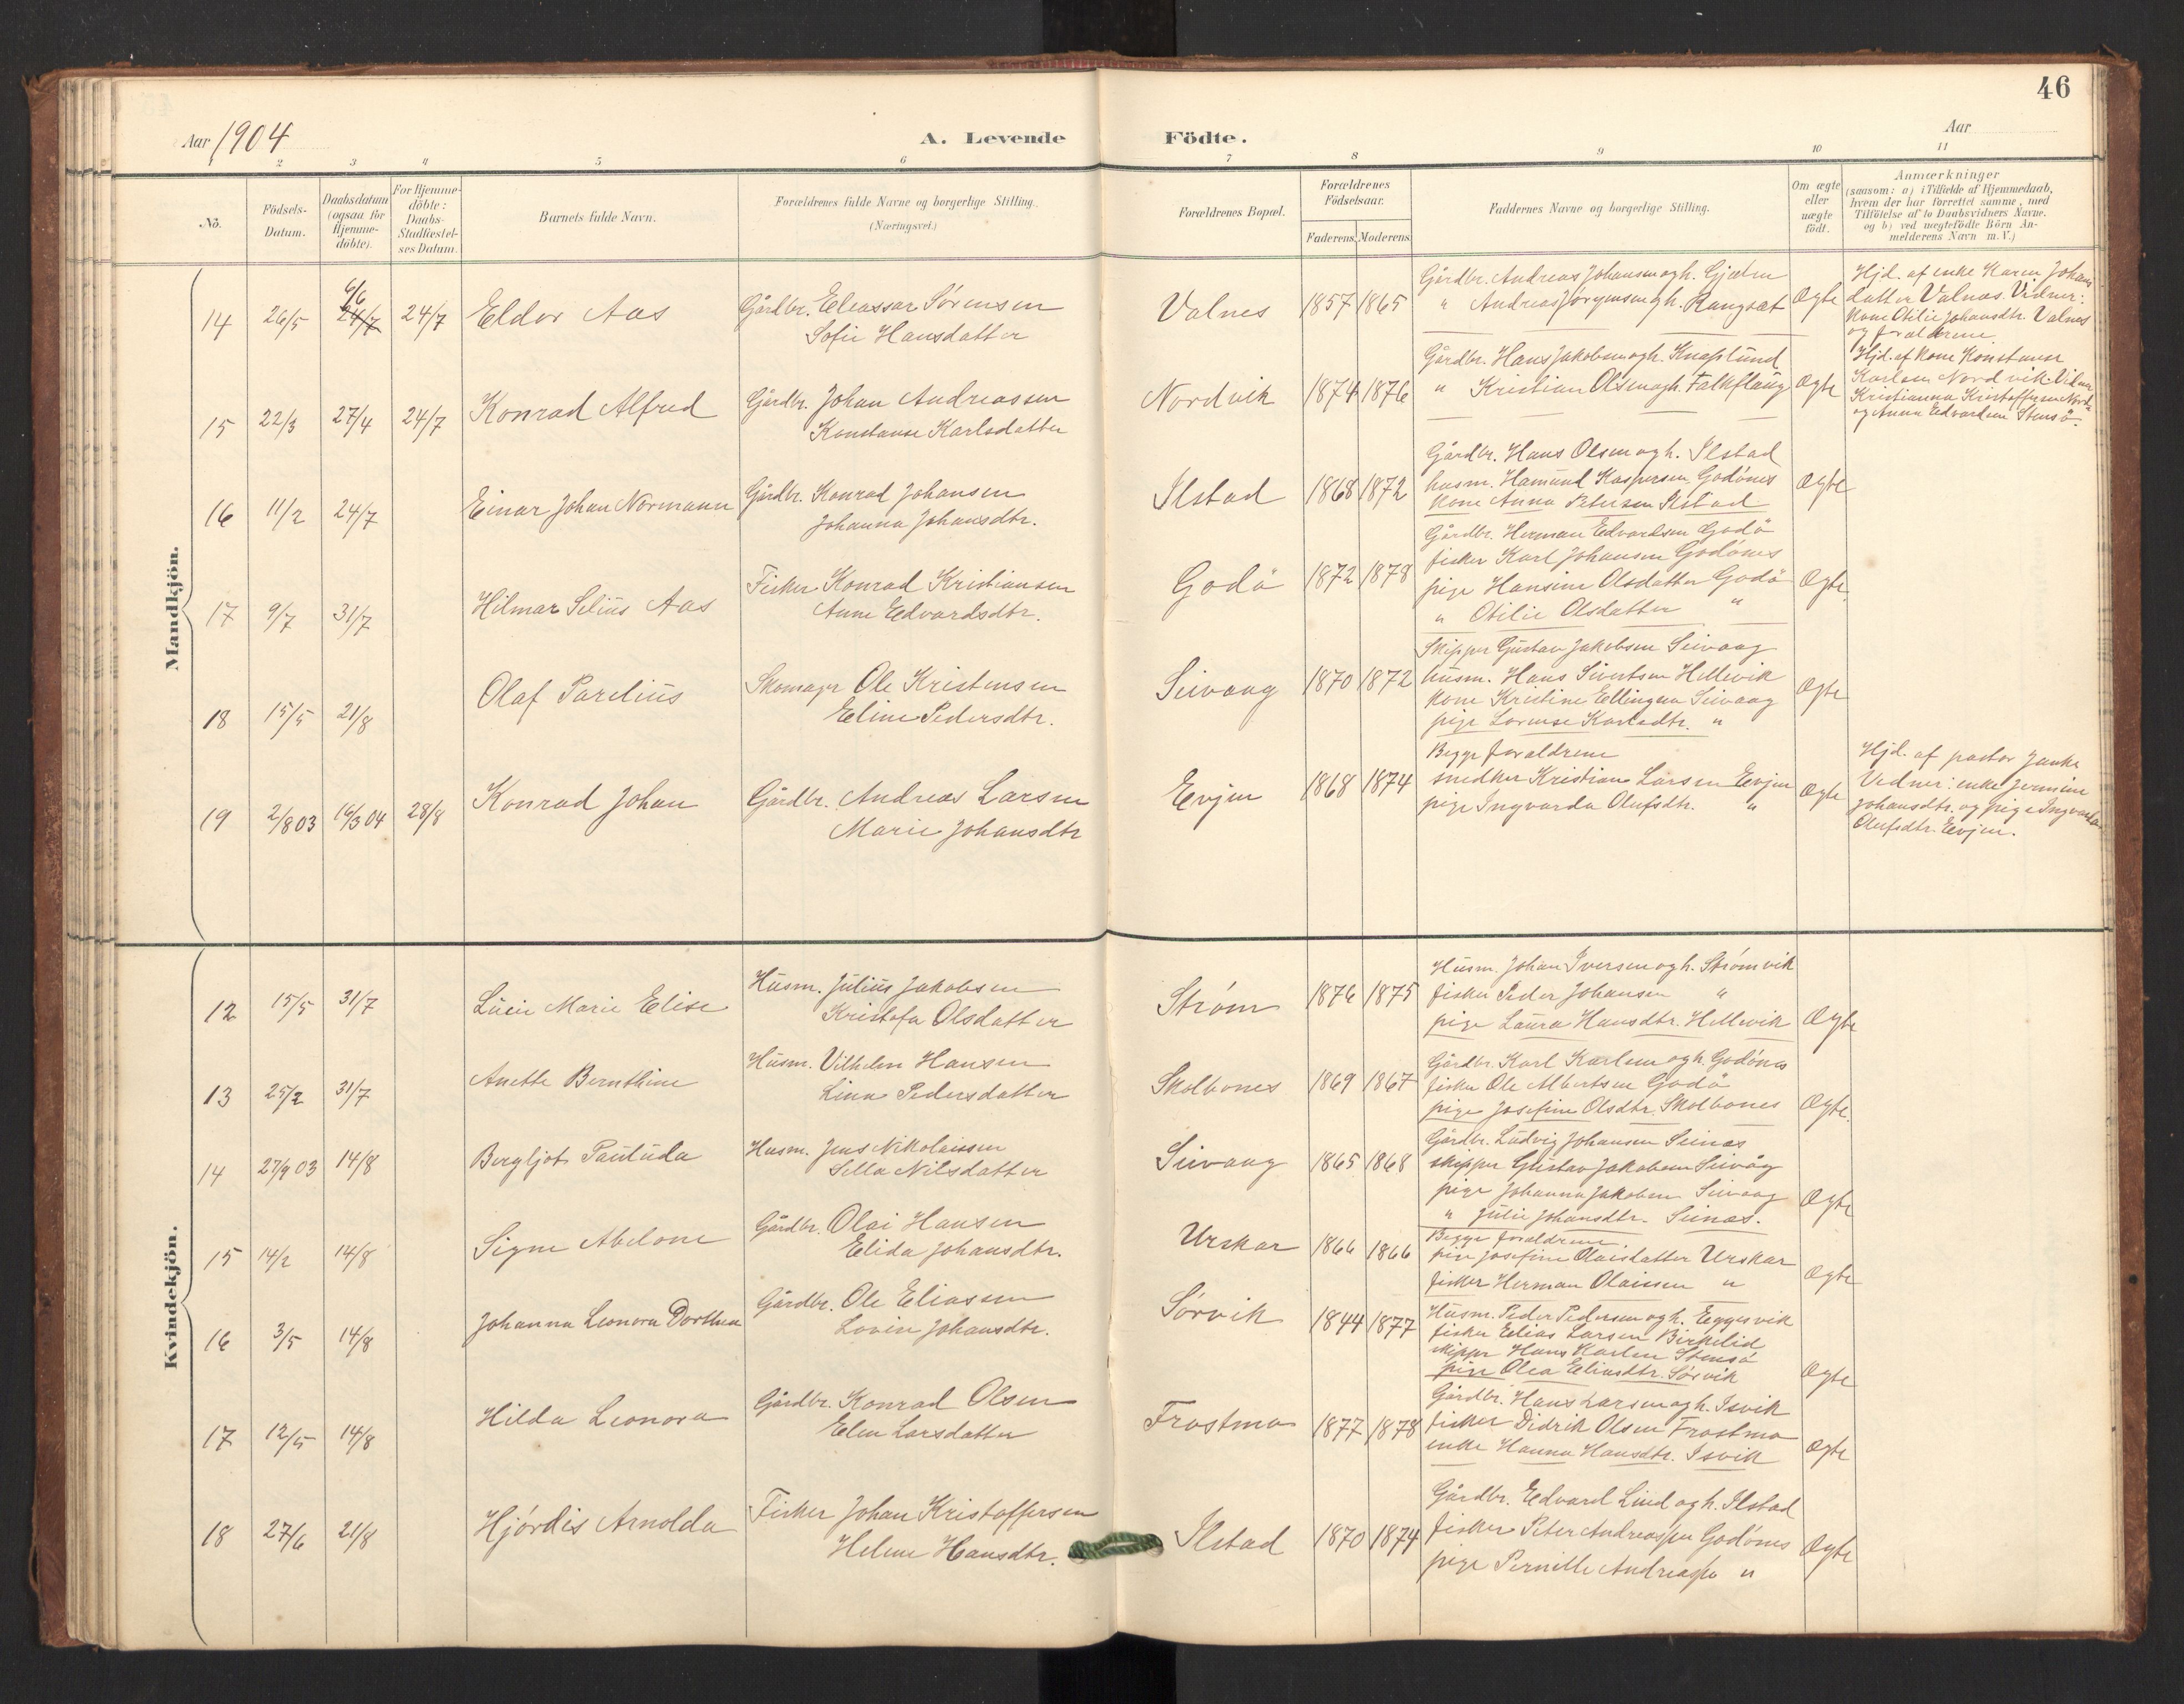 46
Aar 1904
A. Levende Födte.
Aar
1 2 3 4 5 6 7 8 9 10 11
Nö.
Födsels-Datum.
Daabsdatum (ogsaa for Hjemme-döbte).
For Hjemme-döbte: Daabs-Stadfæstel-ses Datum.
Barnets fulde Navn.
Forældrenes fulde Navne og borgerlige Stilling. (Næringsvei.)
Forældrenes Bopæl.
Forældrenes Födselsaar.
Faderens Moderens
Faddernes Navne og borgerlige Stilling.
Om ægte eller uægte födt.
Anmærkninger (saasom: a) i Tilfælde af Hjemmedaab, hvem der har forrettet samme, med Tilföielse af to Daabsvidners Navne. og b) ved uægtefödte Börn Anmelderens Navn m. V.)
Mandkjön.
14 26/5 6/6 24/7 24/7 Eldor Aas
Gårdbr. Eleassar Sørensen
Sofie Hansdatter
Valnes 1857 1865
Gårdbr. Andreas Johansen og h. Gjælen
" Andreas Jørgensen og h. Rangsæt
Ægte
Hjd. af enke Karen Johans
datter Valnæs. Vidner:
Kone Otilie Johansdtr. Valnes
og forældrene
15 22/3 27/4 24/7 Konrad Alfred
Gårdbr. Johan Andreassen
Konstanse Karlsdatter
Nordvik 1874 1876
Gårdbr. Hans Jakobsen og h. Knaplund
" Kristian Olsen og h. Falkflaug
Ægte
Hjd. af kone Konstanse
Karlsen Nordvik. Vidner
Kristianna Kristoffersen Nordv
og Anna Edvardsen Stensö.
16 11/2 24/7 Einar Johan Normann
Gårdbr. Konrad Johansen
Johanna Johansdtr.
Ilstad 1868 1872
Gårdbr. Hans Olsen og h. Ilstad
husm. Hamund Kaspersen Godönes
Kone Anna Petersen Ilstad
Ægte
17 9/7 31/7 Hilmar Selius Aas
Fisker Konrad Kristiansen
Anne Edvardsdtr.
Godö 1872 1878
Gårdbr. Herman Edvardsen Godö
fisker Karl Johansen Godönes
pige Hansine Olsdatter Godö
" Otilie Olsdatter "
Ægte
18 15/5 21/8 Olaf Parelius
Skomager Ole Kristensen
Eline Pedersdtr.
Seivaag 1870 1872
Skipper Gustav Jakobsen Seivaag
husm. Hans Sivertsen Hellevik
kone Kristine Ellingsen Seivaag
pige Lorense Karlsdtr. "
Ægte
19 2/8 03 16/3 04 28/8 Konrad Johan
Gårdbr. Andreas Larsen
Marie Johansdtr
Evjen 1868 1874
Begge forældrene
snedker Kristian Larsen Evjen
pige Ingvarda Olufsdtr. "
Ægte
Hjd. af pastor Janke
Vidner: enke Jermine
Johansdtr. og pige Ingvarda
Olufsdtr. Evjen.
Kvindekjön.
12 15/5 31/7 Lucie Marie Elise
Husm. Julius Jakobsen
Kristofa Olsdatter
Strøm 1876 1875
Husm. Johan Iversen og h. Strömvik
fisker Peder Johansen "
pige Laura Hansdtr. Hellevik
Ægte
13 25/2 31/7 Anette Bernthine
Husm. Vilhelm Hansen
Lina Pedersdatter
Skolbones 1869 1867
Gårdbr. Karl Karlsen og h. Godönes
fisker Ole Albertsen Godö
pige Josefine Olsdtr. Skolbones
Ægte.
14 27/9 03 14/8 Bergljot Pauluda
Husm. Jens Nikolaissen
Sella Nilsdatter
Seivaag 1865 1868
Gårdbr. Ludvig Johansen Seinæs
skipper Gustav Jakobsen Seivåg
pige Johanna Jakobsen Seivaag
" Julie Johansdtr. Seinæs.
Ægte
15 14/2 14/8 Signe Abelone
Gårdbr. Olai Hansen
Elida Johansdtr.
Urskar 1866 1866
Begge forældrene
pige Josefine Olaisdatter Urskar
fisker Herman Olaissen "
Ægte
16 3/5 14/8 Johanna Leonora Dorthea
Gårdbr. Ole Eliassen
Lovise Johansdtr.
Sørvik 1844 1877
Husm. Peder Pedersen og h. Eggesvik
fisker Elias Larsen Birkelid
skipper Hans Karlsen Stensö
pige Olea Eliasdtr. Sørvik
Ægte
17 12/5 14/8 Hilda Leonora
Gårdbr. Konrad Olsen
Elen Larsdatter
Frostmo 1877 1878
Gårdbr. Hans Larsen og h. Isvik
fisker Didrik Olsen Frostmo
enke Hanna Hansdtr. Isvik
Ægte
18 27/6 21/8 Hjördis Arnolda
Fisker Johan Kristoffersen
Helene Hansdtr.
Ilstad 1870 1874
Gårdbr. Edvard Lind og h. Ilstad
fisker Peter Andreassen Godönes
pige Pernille Andreassen "
Ægte